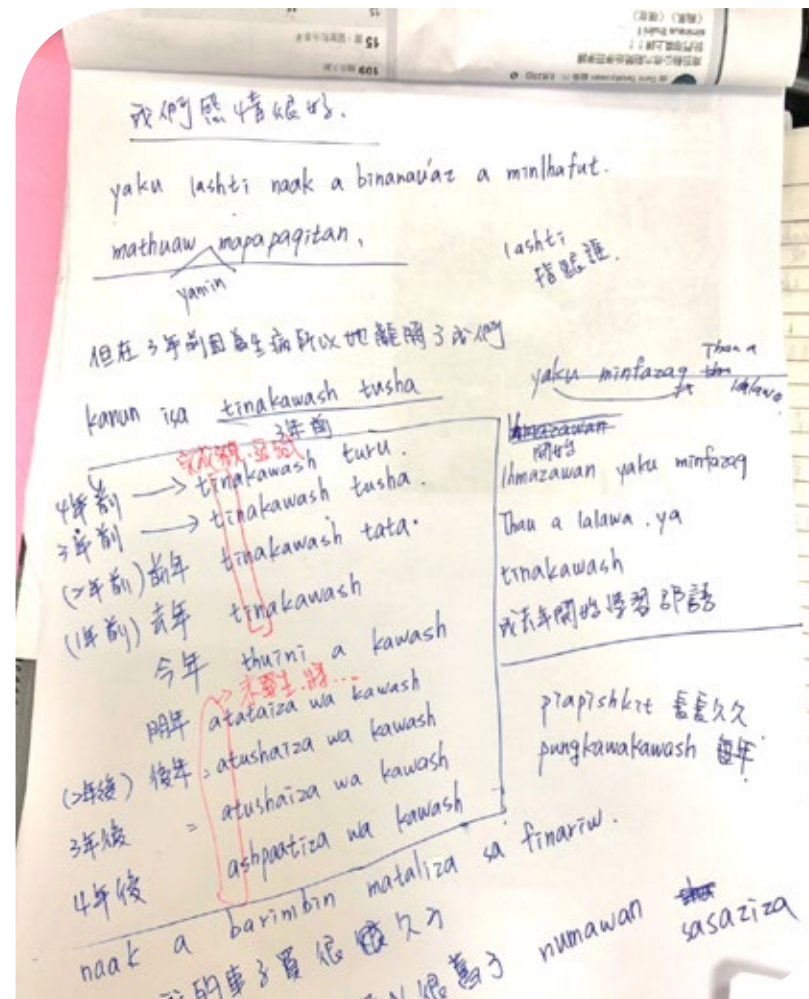 15
109
我們感情很好.
yaku lashti naak a binanau'az a minlhafut.
mathuaw mapapaqitan,
yamin
lashti
指是誰.
但在3年前因為生病所以她離開了我們
kanun isa tinakawash tusha
3年前
yaku minfazaq Thau a lalawa
開始
lhmazawan yaku minfazaq
Thau a lalawa . ya
tinakawash
我去年開始學習邵語
4年前 → tinakawash turu.
3年前 → tinakawash tusha.
(2年前) 前年 tinakawash tata.
(1年前) 去年 tinakawash
今年 thuini a kawash
未發生.將...
明年 atataiza wa kawash
(2年後) 後年 = atushaiza wa kawash
3年後 = atushaiza wa kawash
4年後 ashpaatiza wa kawash
piapishkit 長長久久
pungkawakawash 每年
naak a barimbin mataliza sa finariw.
我的車子買很久了
很舊了 numawan sasaziza